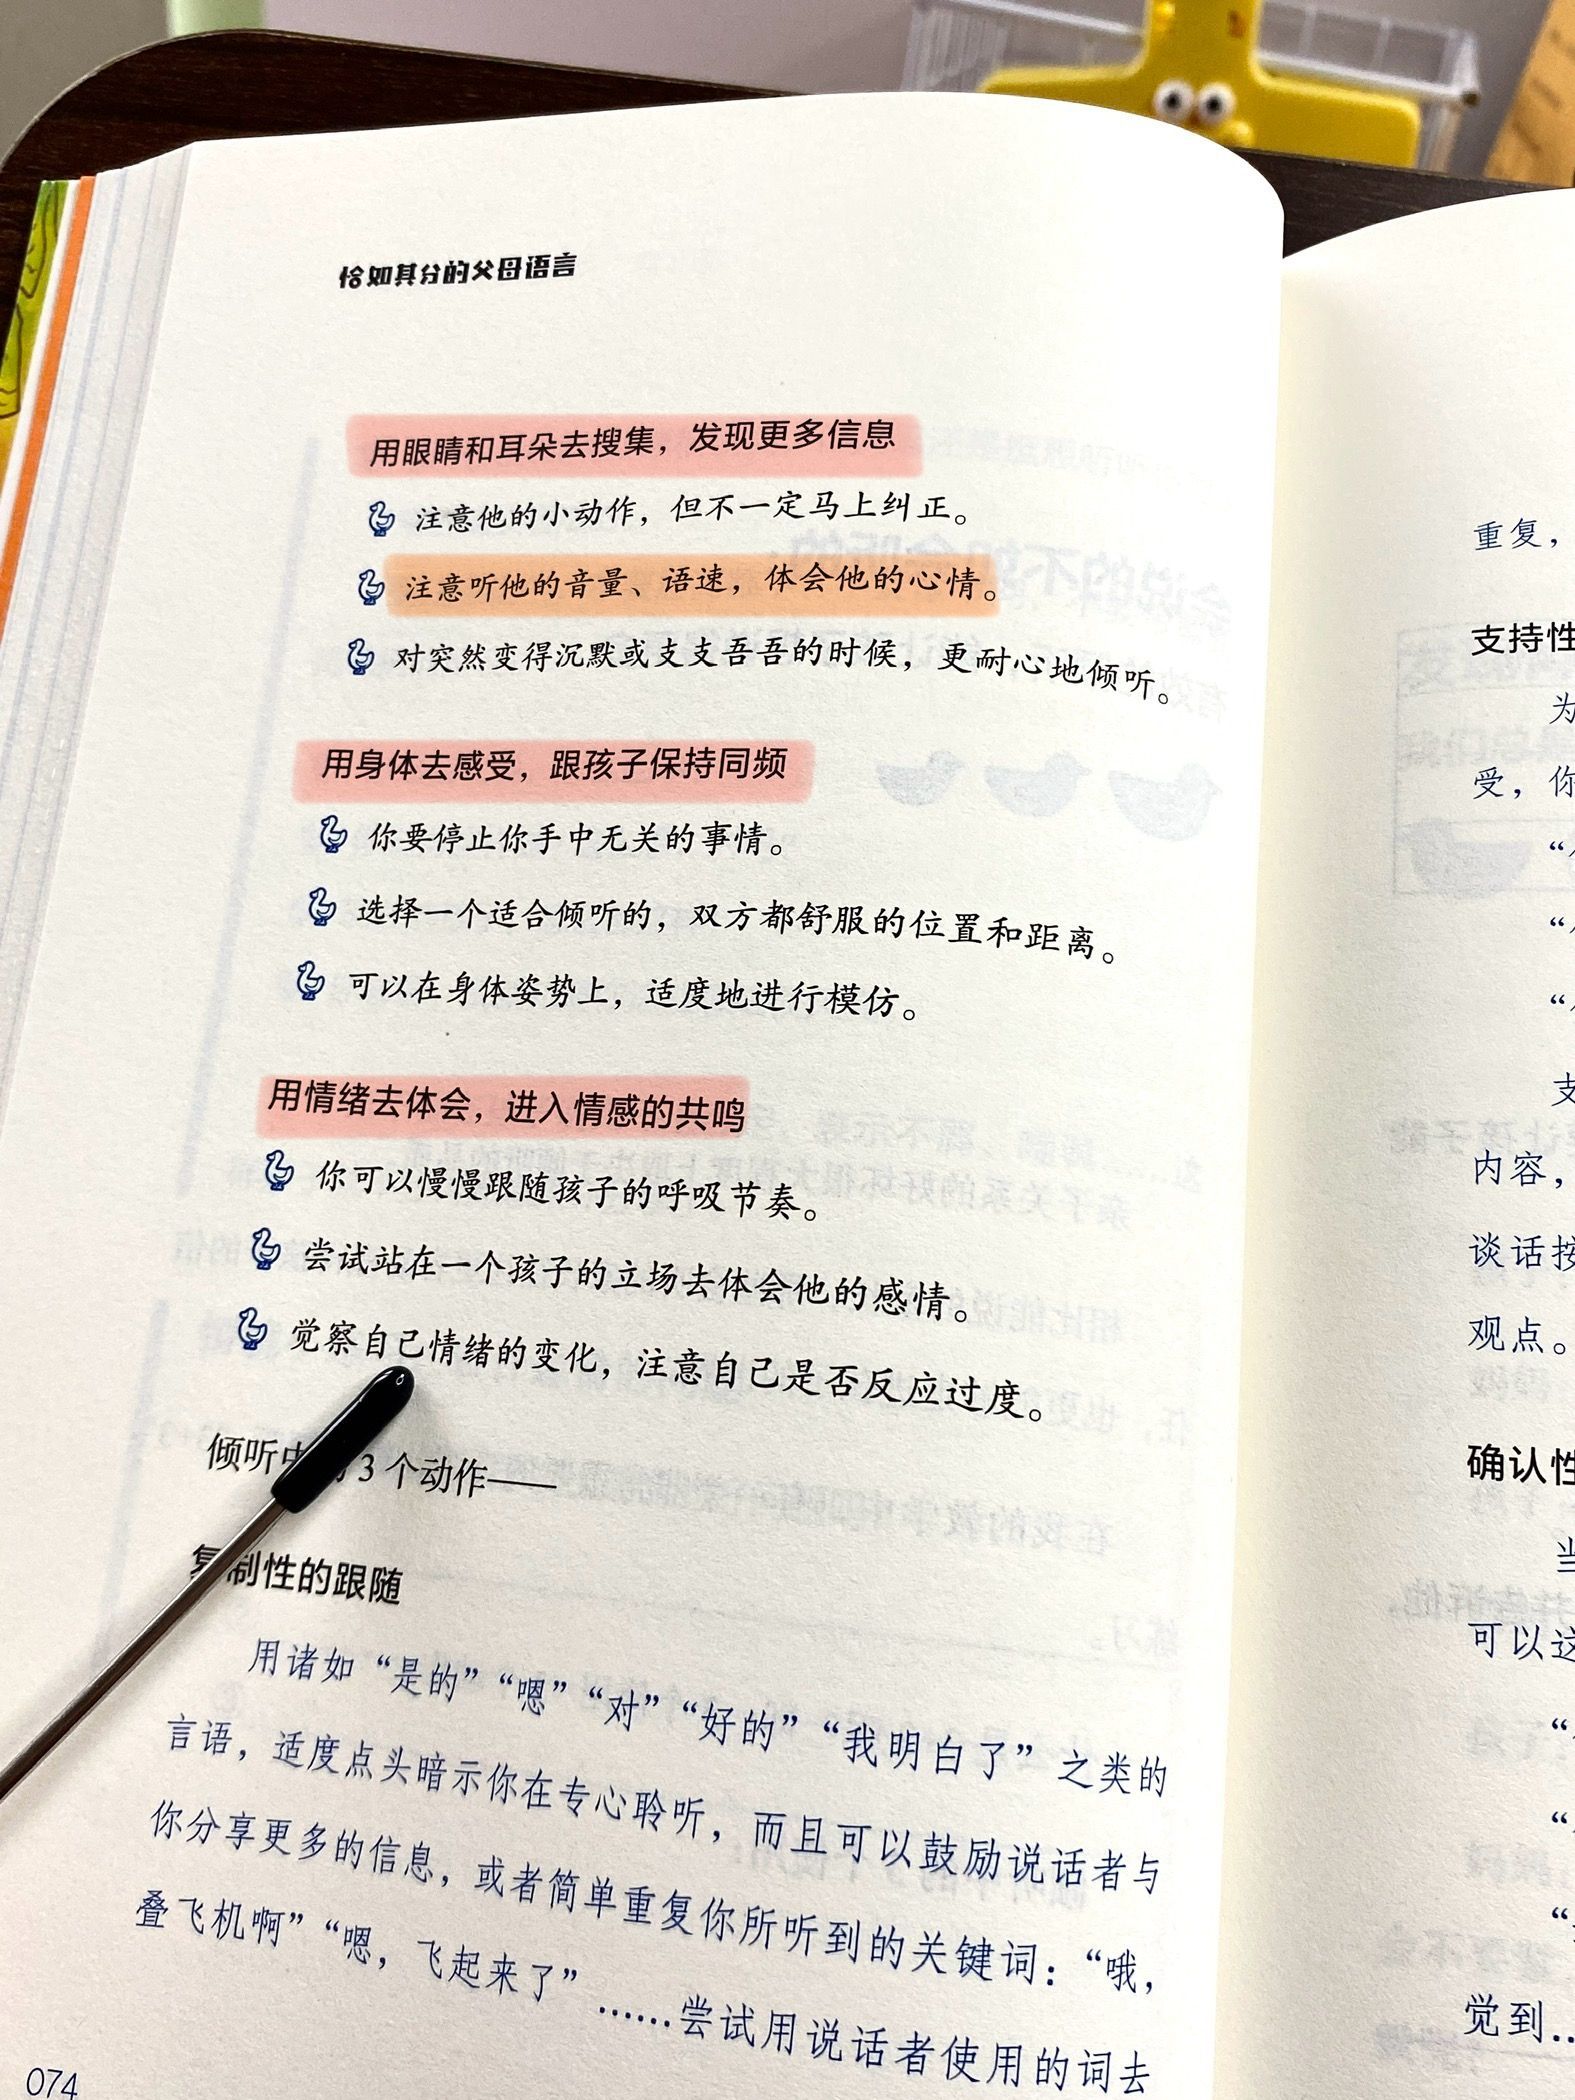 恰如其分的父母语言
用眼睛和耳朵去搜集，发现更多信息
注意他的小动作，但不一定马上纠正。
注意听他的音量、语速，体会他的心情。
对突然变得沉默或支支吾吾的时候，更耐心地倾听。
用身体去感受，跟孩子保持同频
你要停止你手中无关的事情。
选择一个适合倾听的，双方都舒服的位置和距离。
可以在身体姿势上，适度地进行模仿。
用情绪去体会，进入情感的共鸣
你可以慢慢跟随孩子的呼吸节奏。
尝试站在一个孩子的立场去体会他的感情。
觉察自己情绪的变化，注意自己是否反应过度。
倾听中的3个动作——
复制性的跟随
用诸如“是的”“嗯”“对”“好的”“我明白了”之类的
言语，适度点头暗示你在专心聆听，而且可以鼓励说话者与
你分享更多的信息，或者简单重复你所听到的关键词：“哦，
叠飞机啊”“嗯，飞起来了”……尝试用说话者使用的词去
074
重复，
支持性
为
受，你
“
“
“
支
内容，
谈话按
观点。
确认性
当
可以这
“
“
“
觉到…